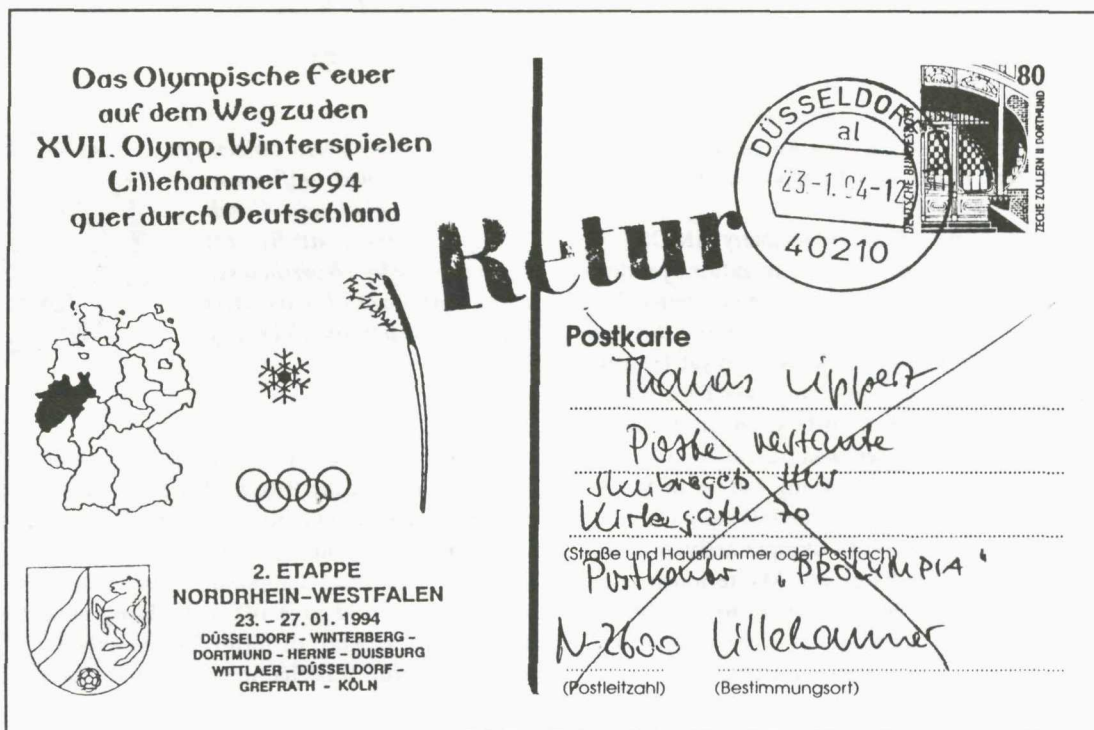 Das Olympische Feuer
auf dem Weg zu den
XVII. Olymp. Winterspielen
Lillehammer 1994
quer durch Deutschland
Retur
2. ETAPPE
NORDRHEIN-WESTFALEN
23. - 27. 01. 1994
DÜSSELDORF - WINTERBERG -
DORTMUND - HERNE - DUISBURG
WITTLAER - DÜSSELDORF -
GREFRATH - KÖLN
DÜSSELDORF
al
23.-1.94-12
40210
80
DEUTSCHE BUNDESPOST
ZECHE ZOLLERN II DORTMUND
Postkarte
Thomas Lippert
Poste restante
Kirkegaten 70
(Straße und Hausnummer oder Postfach)
Postkontor "PROLYMPIA"
N-2600 Lillehammer
(Postleitzahl) (Bestimmungsort)